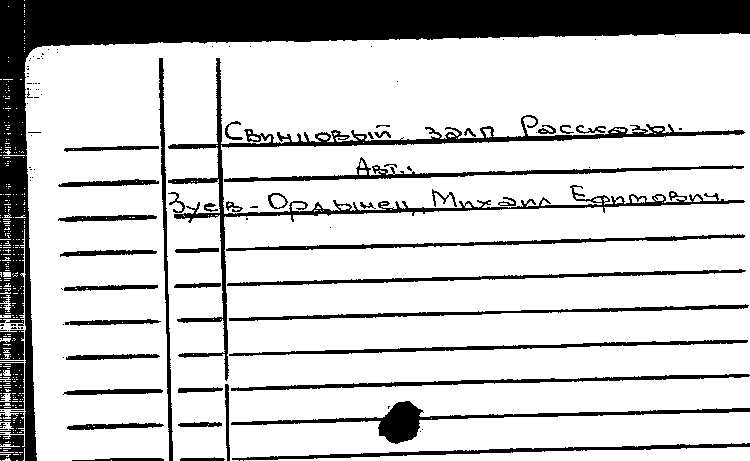 Свинцовый залп Рассказы.
Авт.:
Зуев-Ордынец, Михаил Ефимович.